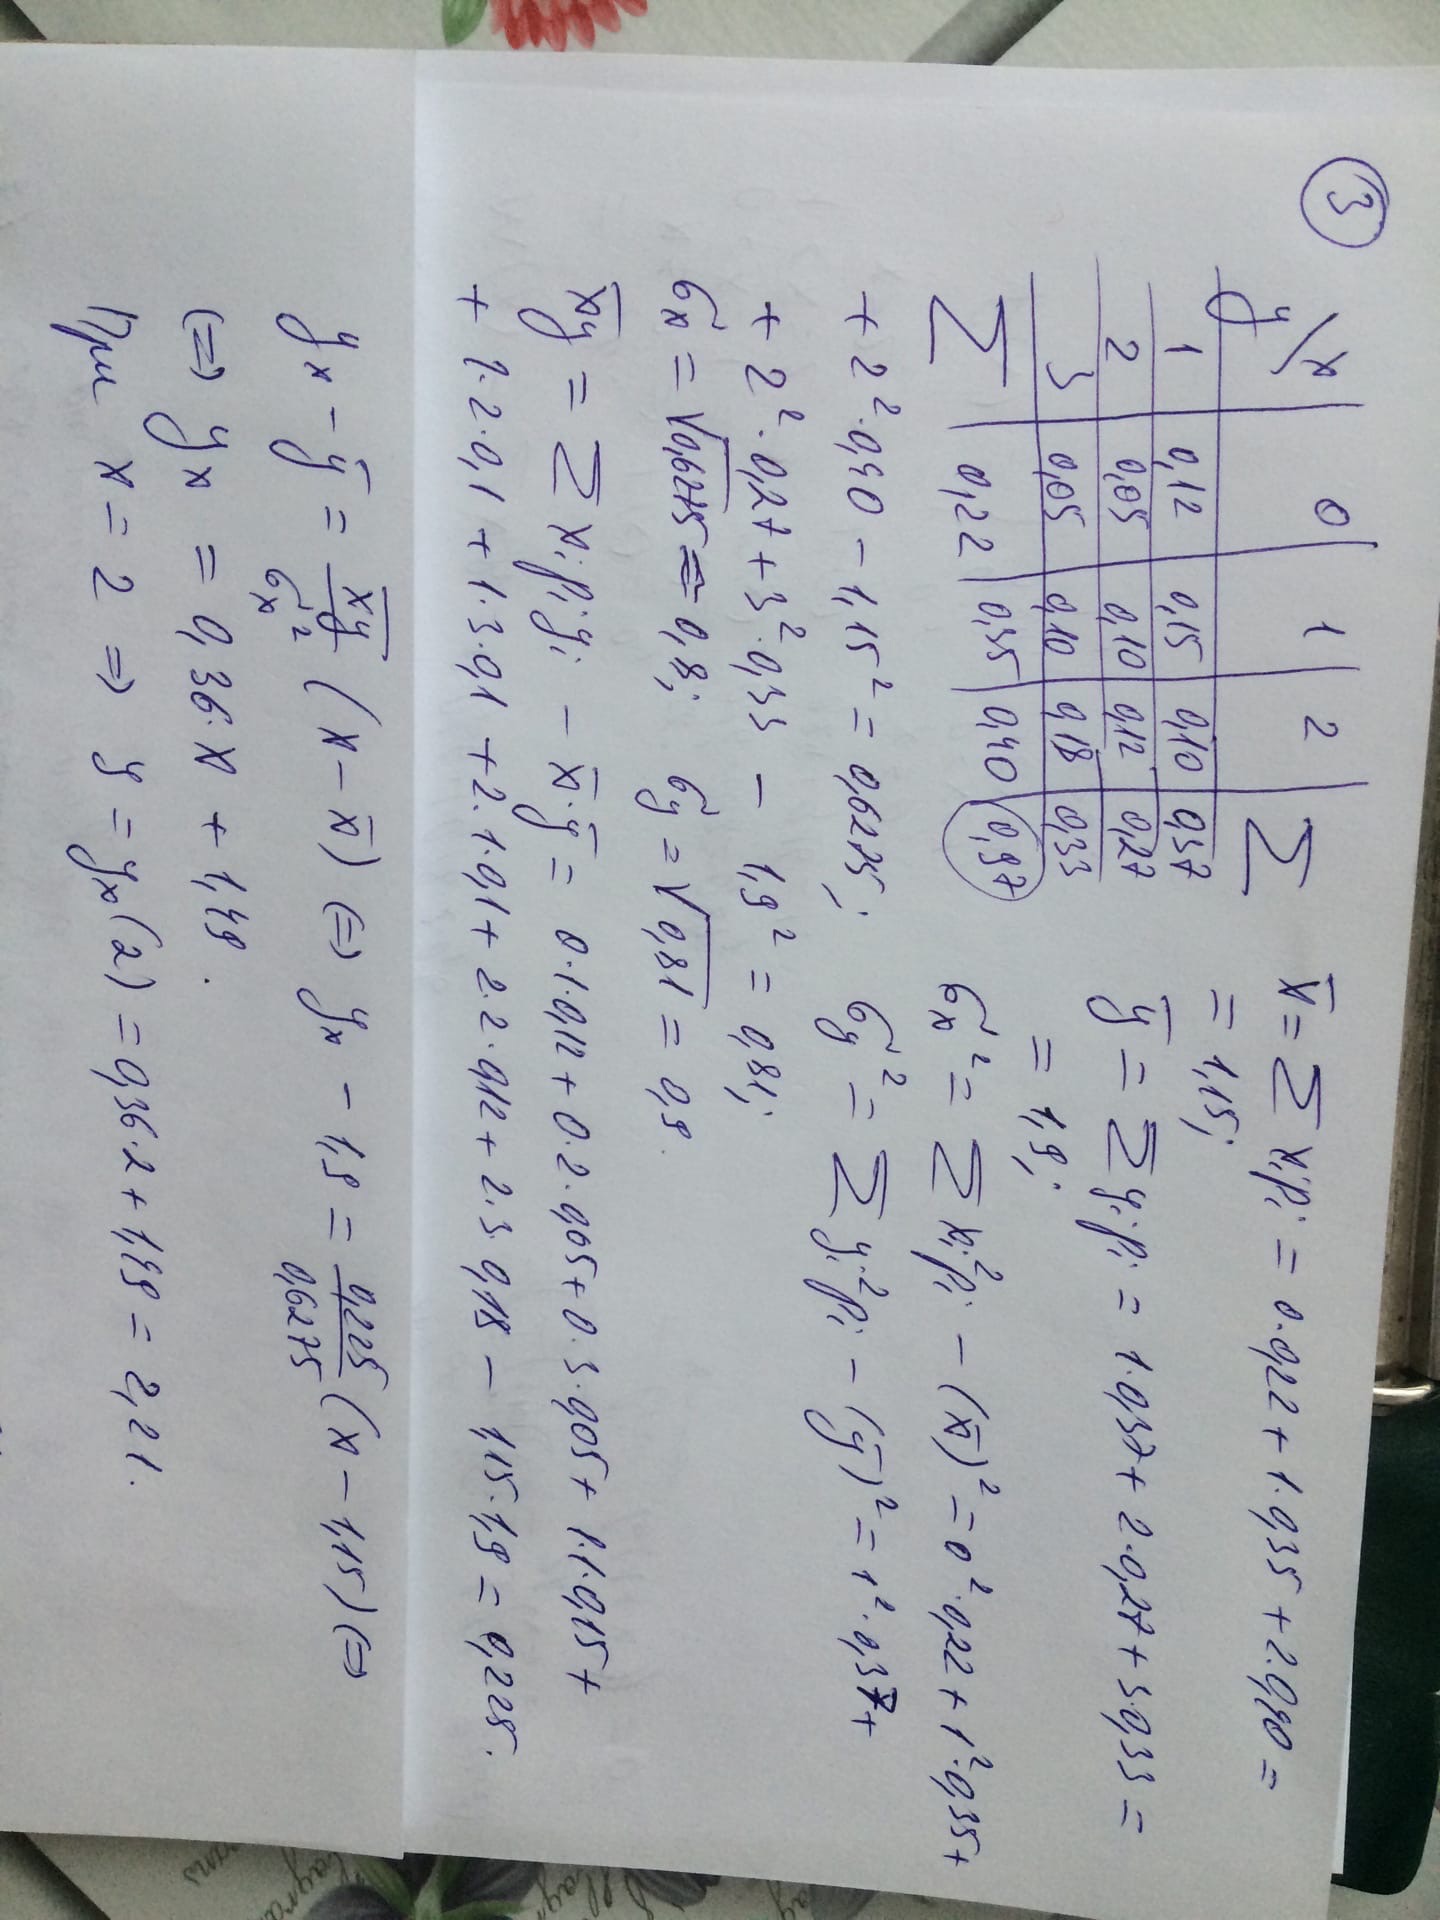 3
y/x 0 1 2 Σ
1 0,12 0,15 0,10 0,37
2 0,05 0,10 0,12 0,27
3 0,05 0,10 0,18 0,33
Σ 0,22 0,35 0,40 0,97
x̄ = Σ xᵢpᵢ = 0·0,22 + 1·0,35 + 2·0,40 =
= 1,15;
ȳ = Σ yᵢpᵢ = 1·0,37 + 2·0,27 + 3·0,33 =
= 1,9;
σₓ² = Σ xᵢ²pᵢ – (x̄)² = 0²·0,22 + 1²·0,35 +
+ 2²·0,40 – 1,15² = 0,6275;
σy² = Σ yᵢ²pᵢ – (ȳ)² = 1²·0,37 +
+ 2²·0,27 + 3²·0,33 – 1,9² = 0,81;
σₓ = √0,6275 ≈ 0,8; σy = √0,81 = 0,9.
x̄ȳ = Σ xᵢpᵢyᵢ – x̄·ȳ = 0·1·0,12 + 0·2·0,05 + 0·3·0,05 + 1·1·0,15 +
+ 1·2·0,1 + 1·3·0,1 + 2·1·0,1 + 2·2·0,12 + 2·3·0,18 – 1,15·1,9 = 0,225.
yₓ – ȳ = x̄ȳ/σₓ² (x – x̄) (=) yₓ – 1,9 = 0,225/0,6275 (x – 1,15) (=)
(=) yₓ = 0,36·x + 1,49.
При x = 2 ⇒ y = yₓ(2) = 0,36·2 + 1,49 = 2,21.